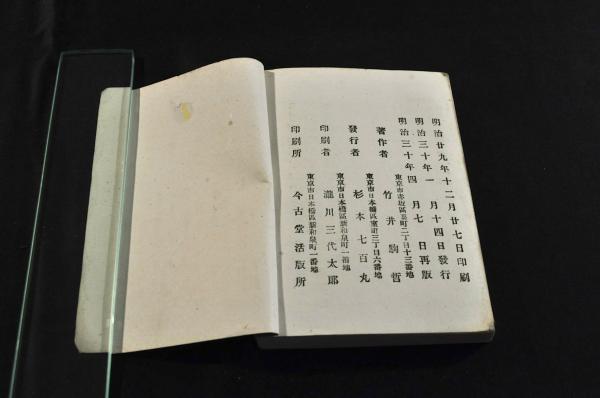 明治廿九年十二月廿七日印刷
明治三十年一月十四日發行
明治三十年四月七日再版
東京市赤坂區裏町二丁目十三番地
著作者 竹井駒哲
東京市日本橋區室町三丁目六番地
發行者 杉本七百丸
東京市日本橋區新和泉町一番地
印刷者 瀧川三代太郎
東京市日本橋區新和泉町一番地
印刷所 今古堂活版所